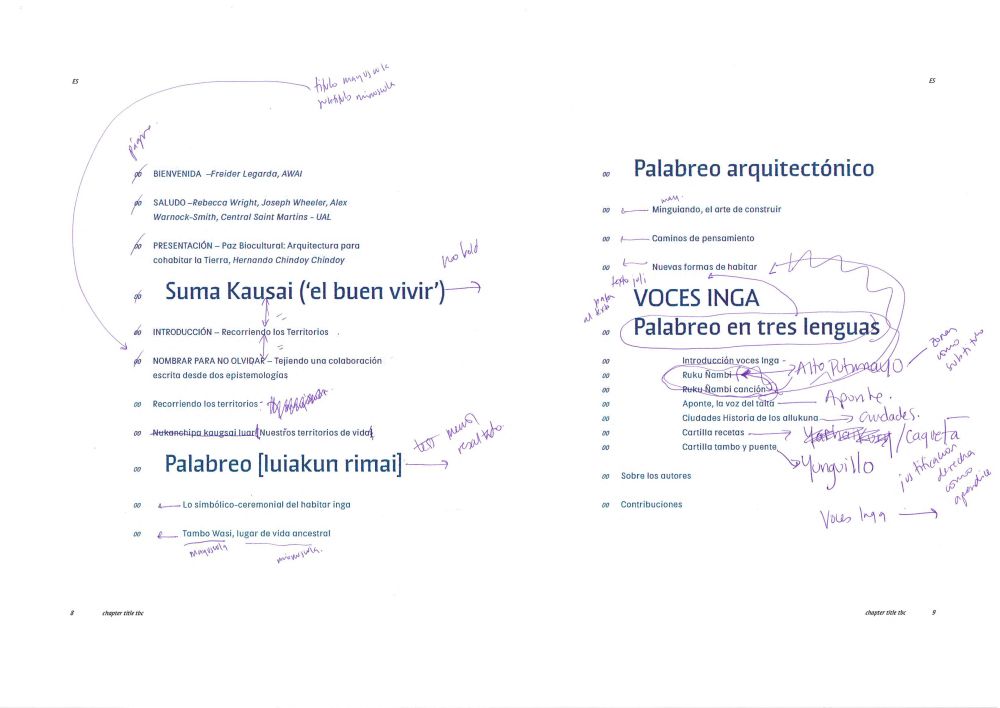 ES
título mayuscula
subtitulo minuscula
página
00 BIENVENIDA –Freider Legarda, AWAI
00 SALUDO –Rebecca Wright, Joseph Wheeler, Alex
Warnock-Smith, Central Saint Martins - UAL
00 PRESENTACIÓN – Paz Biocultural: Arquitectura para
cohabitar la Tierra, Hernando Chindoy Chindoy
no bold
00 Suma Kausai (‘el buen vivir’)
00 INTRODUCCIÓN – Recorriendo los Territorios
00 NOMBRAR PARA NO OLVIDAR – Tejiendo una colaboración
escrita desde dos epistemologías
00 Recorriendo los territorios -
00 Nukanchipa kaugsai luar (Nuestros territorios de vida)
menos
resaltado
00 Palabreo [luiakun rimai]
00 Lo simbólico-ceremonial del habitar inga
00 Tambo Wasi, lugar de vida ancestral
mayuscula
minuscula.
8 chapter title tbc
ES
00 Palabreo arquitectónico
may.
00 Minguiando, el arte de construir
00 Caminos de pensamiento
00 Nuevas formas de habitar
00 VOCES INGA
00 Palabreo en tres lenguas
00 Introducción voces Inga -
00 Ruku Ñambi Alto Putumayo
zonas
como
subtitulo
00 Ruku Ñambi canción
00 Aponte, la voz del taita Aponte.
00 Ciudades Historia de los allukuna ciudades.
00 Cartilla recetas /Caqueta
00 Cartilla tambo y puente Yunguillo
justificación
derecha
como
apendice
00 Sobre los autores
00 Contribuciones
Voces Inga
chapter title tbc 9